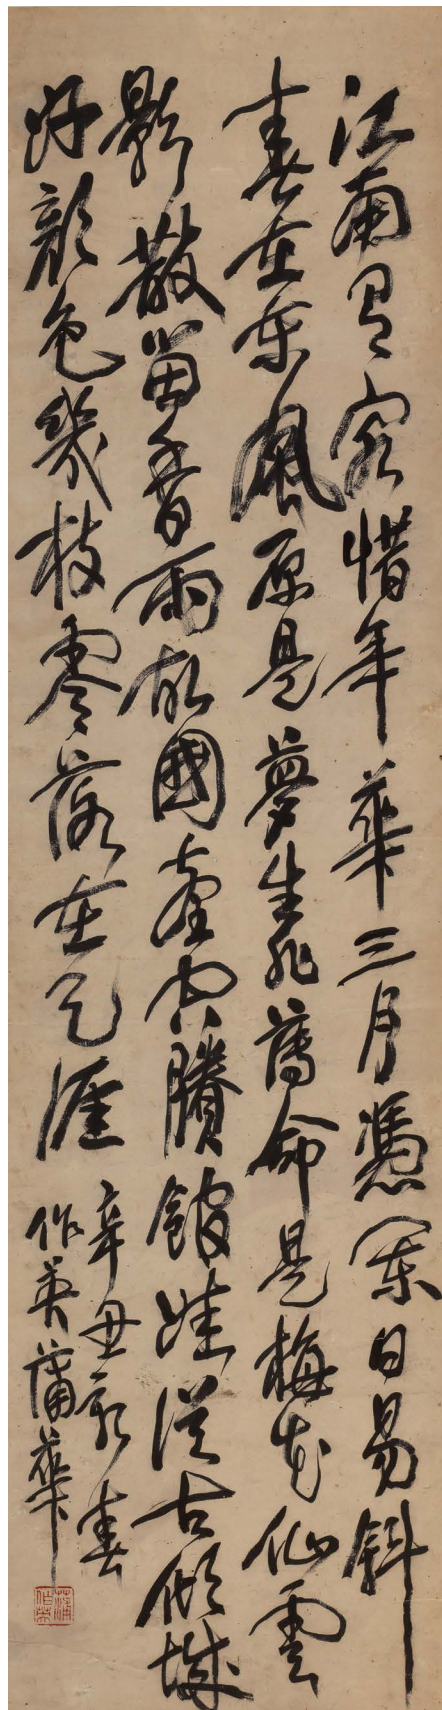 江南有客惜年華三月憑闌日易斜
春在東風原是夢生非薄命是梅花仙雲
影散留香雨故國臺空賸館娃從古傾城
好顏色幾枝零落在天涯
辛丑新春
作英蒲華
蒲作英